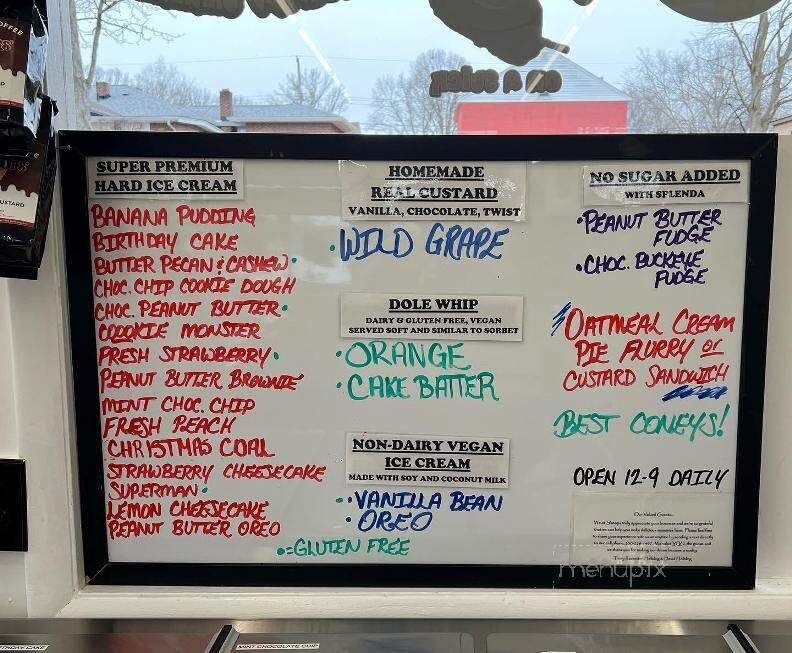 SUPER PREMIUM
HARD ICE CREAM
BANANA PUDDING
BIRTHDAY CAKE
BUTTER PECAN & CASHEW •
CHOC. CHIP COOKIE DOUGH
CHOC. PEANUT BUTTER •
COOOKIE MONSTER
FRESH STRAWBERRY •
PEANUT BUTTER BROWNIE
MINT CHOC. CHIP
FRESH PEACH
CHRISTMAS COAL
STRAWBERRY CHEESECAKE
SUPERMAN •
LEMON CHEESECAKE
PEANUT BUTTER OREO
HOMEMADE
REAL CUSTARD
VANILLA, CHOCOLATE, TWIST
• WILD GRAPE
DOLE WHIP
DAIRY & GLUTEN FREE, VEGAN
SERVED SOFT AND SIMILAR TO SORBET
• ORANGE
• CAKE BATTER
NON-DAIRY VEGAN
ICE CREAM
MADE WITH SOY AND COCONUT MILK
• VANILLA BEAN
• OREO
• = GLUTEN FREE
NO SUGAR ADDED
WITH SPLENDA
• PEANUT BUTTER
FUDGE
• CHOC. BUCKEYE
FUDGE
OATMEAL CREAM
PIE FLURRY or
CUSTARD SANDWICH
BEST CONEYS!
OPEN 12-9 DAILY
menupix
MINT CHOCOLATE CHIP